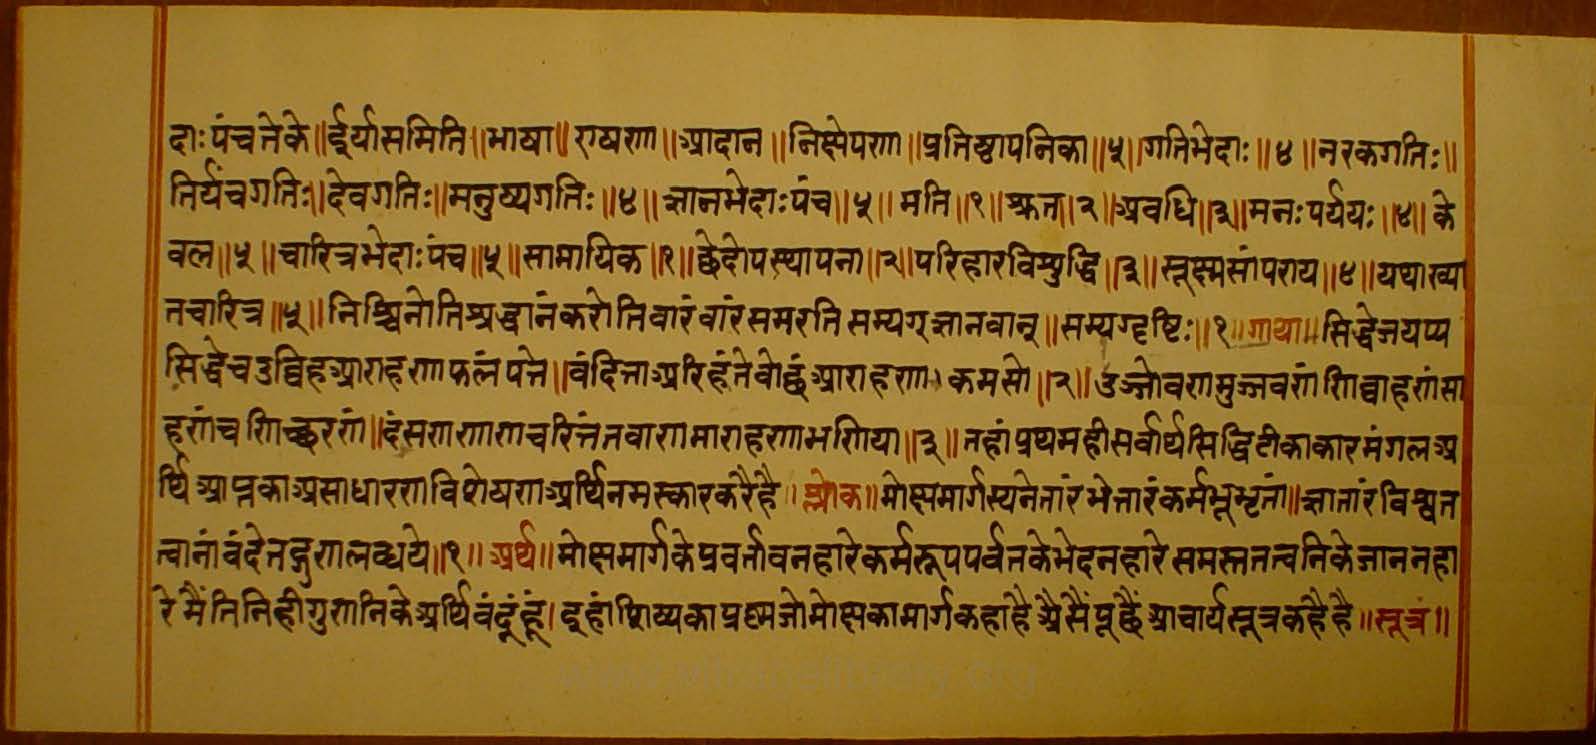 दाः पंचत्तेके॥ईर्यासमिति॥भाषा॥एषणा॥आदान॥निक्षेपणा॥प्रतिष्ठापनिका॥५॥गतिभेदाः॥४॥नरकगतिः॥
तिर्यंचगतिः॥देवगतिः॥मनुष्यगतिः॥४॥ज्ञानभेदाःपंच॥५॥मति॥१॥श्रुत॥२॥अवधि॥३॥मनःपर्ययः॥४॥के
वल॥५॥चारित्रभेदाःपंच॥५॥सामायिक॥१॥छेदोपस्थापना॥२॥परिहारविशुद्धि॥३॥सूक्ष्मसांपराय॥४॥यथाख्या
तचारित्र॥५॥निश्चिनोतिश्रद्धानंकरोतिवारंवारंसमरतिसम्यग्ज्ञानवान्॥सम्यग्दृष्टिः॥१॥गाथा॥सिद्धेजयप्प
सिद्धेचउव्विहआराहणाफलंपत्ते॥वंदित्ताअरिहंतेवोछंआराहणा।कमसो॥२॥उज्जोवणमुज्जवणंणिव्वाहणंसा
हणंचणिच्छरणं॥दंसणणाणचरित्तंतवाणमाराहणाभणिया॥३॥तहांप्रथमहीसर्वार्थसिद्धिटीकाकारमंगलअ
र्थिआप्तकाअसाधारणविशेषणअर्थिनमस्कारकरैहै॥श्लोक॥मोक्षमार्गस्यनेतारंभेत्तारंकर्मभूभृतां॥ज्ञातारंविश्वत
त्वानांवंदेतद्गुणलब्धये॥१॥अर्थ॥मोक्षमार्गकेप्रवर्त्तावनहारेकर्मरूपपर्वतकेभेदनहारेसमस्ततत्वनिकेजाननहा
रेमैंतिनिहीगुणनिकेअर्थिवंदूंहूं।इहांशिष्यकाप्रश्नजोमोक्षकामार्गकहाहैअैसैंपूछैंआचार्यसूत्रकहैहै॥सूत्रं॥
www.vitragelibrary.org